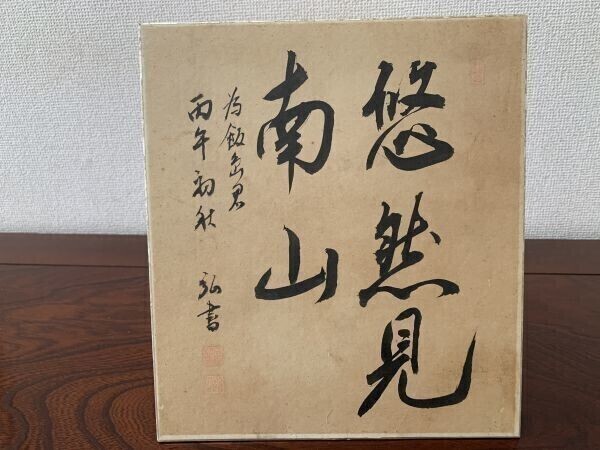 悠然見
南山
為飯島君
丙午初秋 弘書